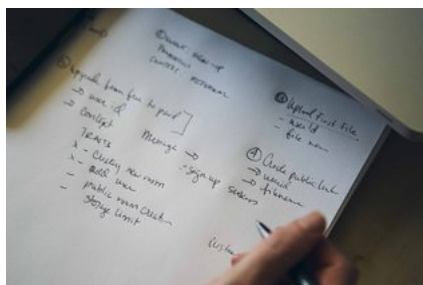 ① user sign-up
CONTEXT: REFERRER
② upgrade from free to paid
→ user id
→ context
TRAITS
x - Creating new room
x - ADD user
- public room creation
- storage limit
Message →
- sign up
③ Upload first file
- user Id
- file name
④ Create public link
→ userid
→ filename